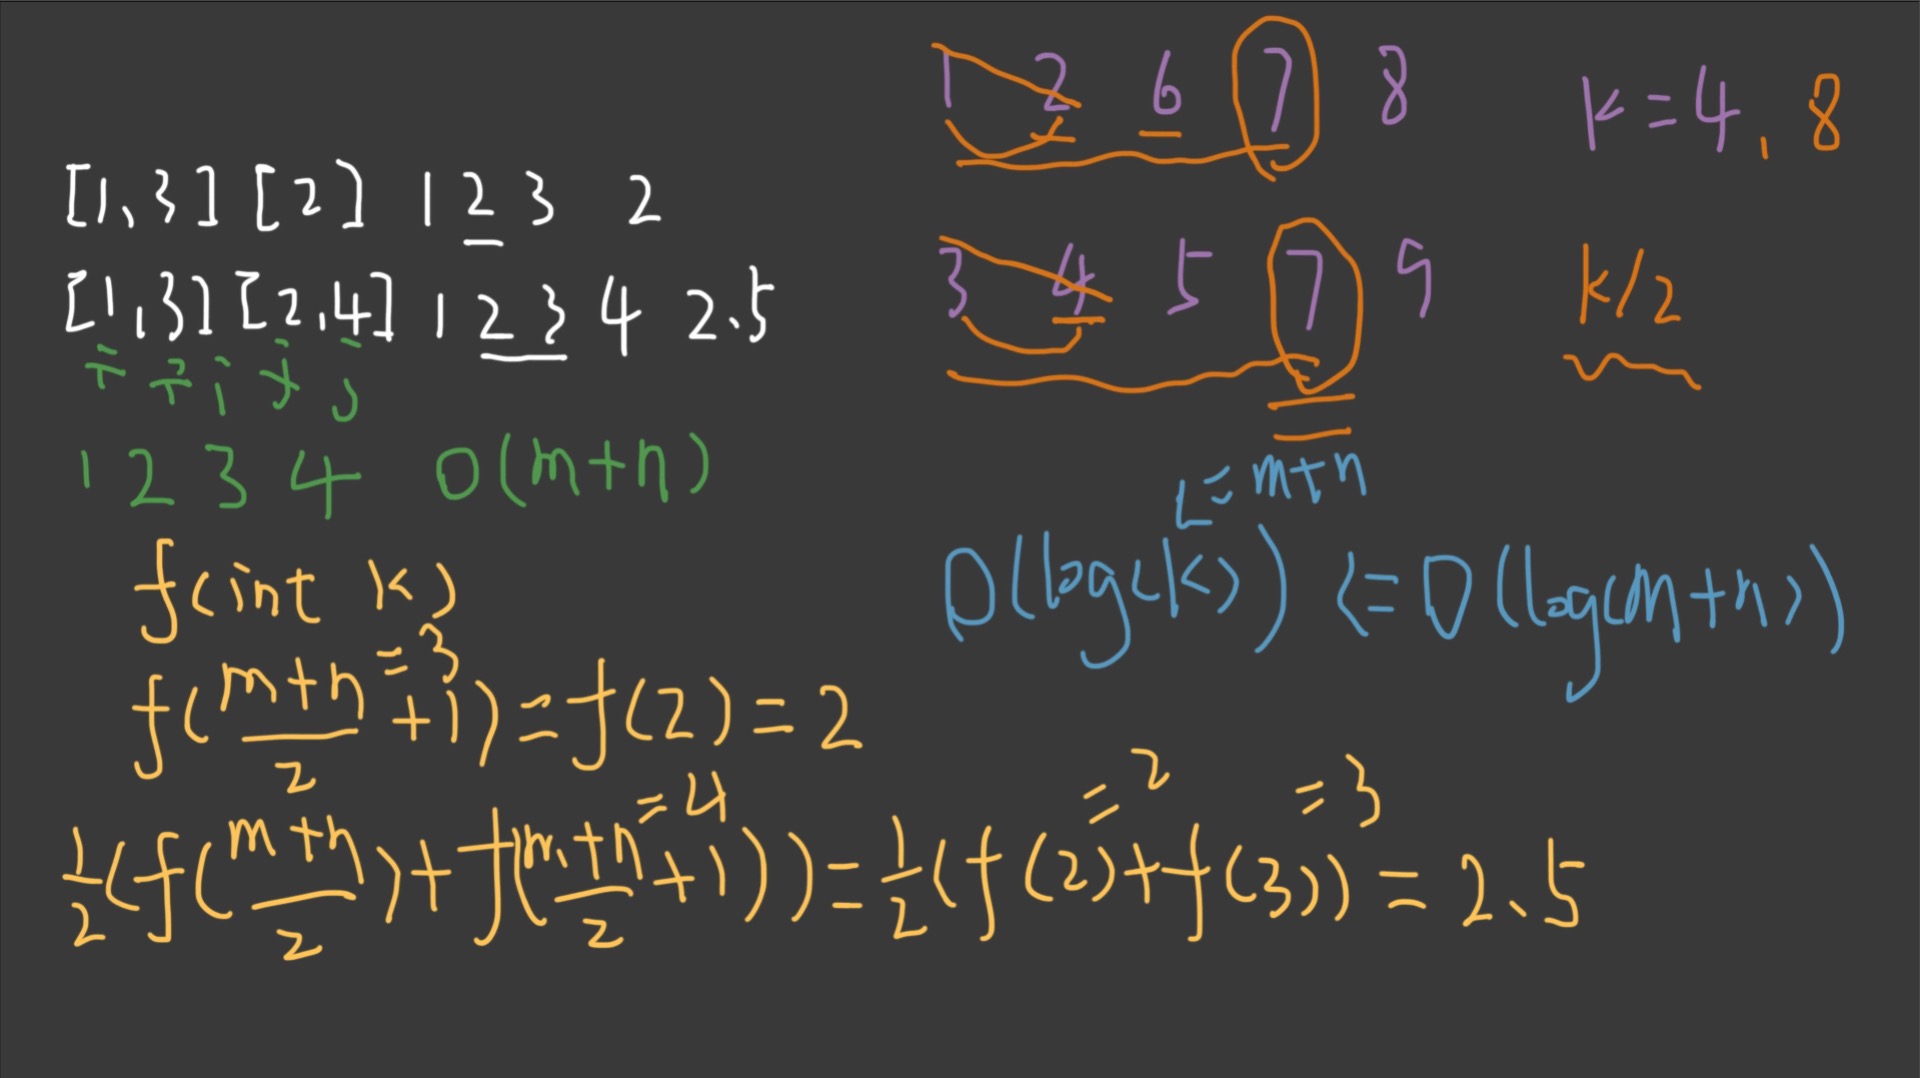 [1,3] [2] 1 2 3 2
[1,3] [2,4] 1 2 3 4 2.5
i i i j j
1 2 3 4 O(m+n)
f(int k)
f(m+n/2 +1) = f(2) = 2
=3
1/2(f(m+n/2)+f(m+n/2 +1)) = 1/2(f(2)+f(3)) = 2.5
=4
=2 =3
1 2 6 7 8 k=4, 8
3 4 5 7 9 k/2
L=m+n
O(log(k)) <= O(log(m+n))